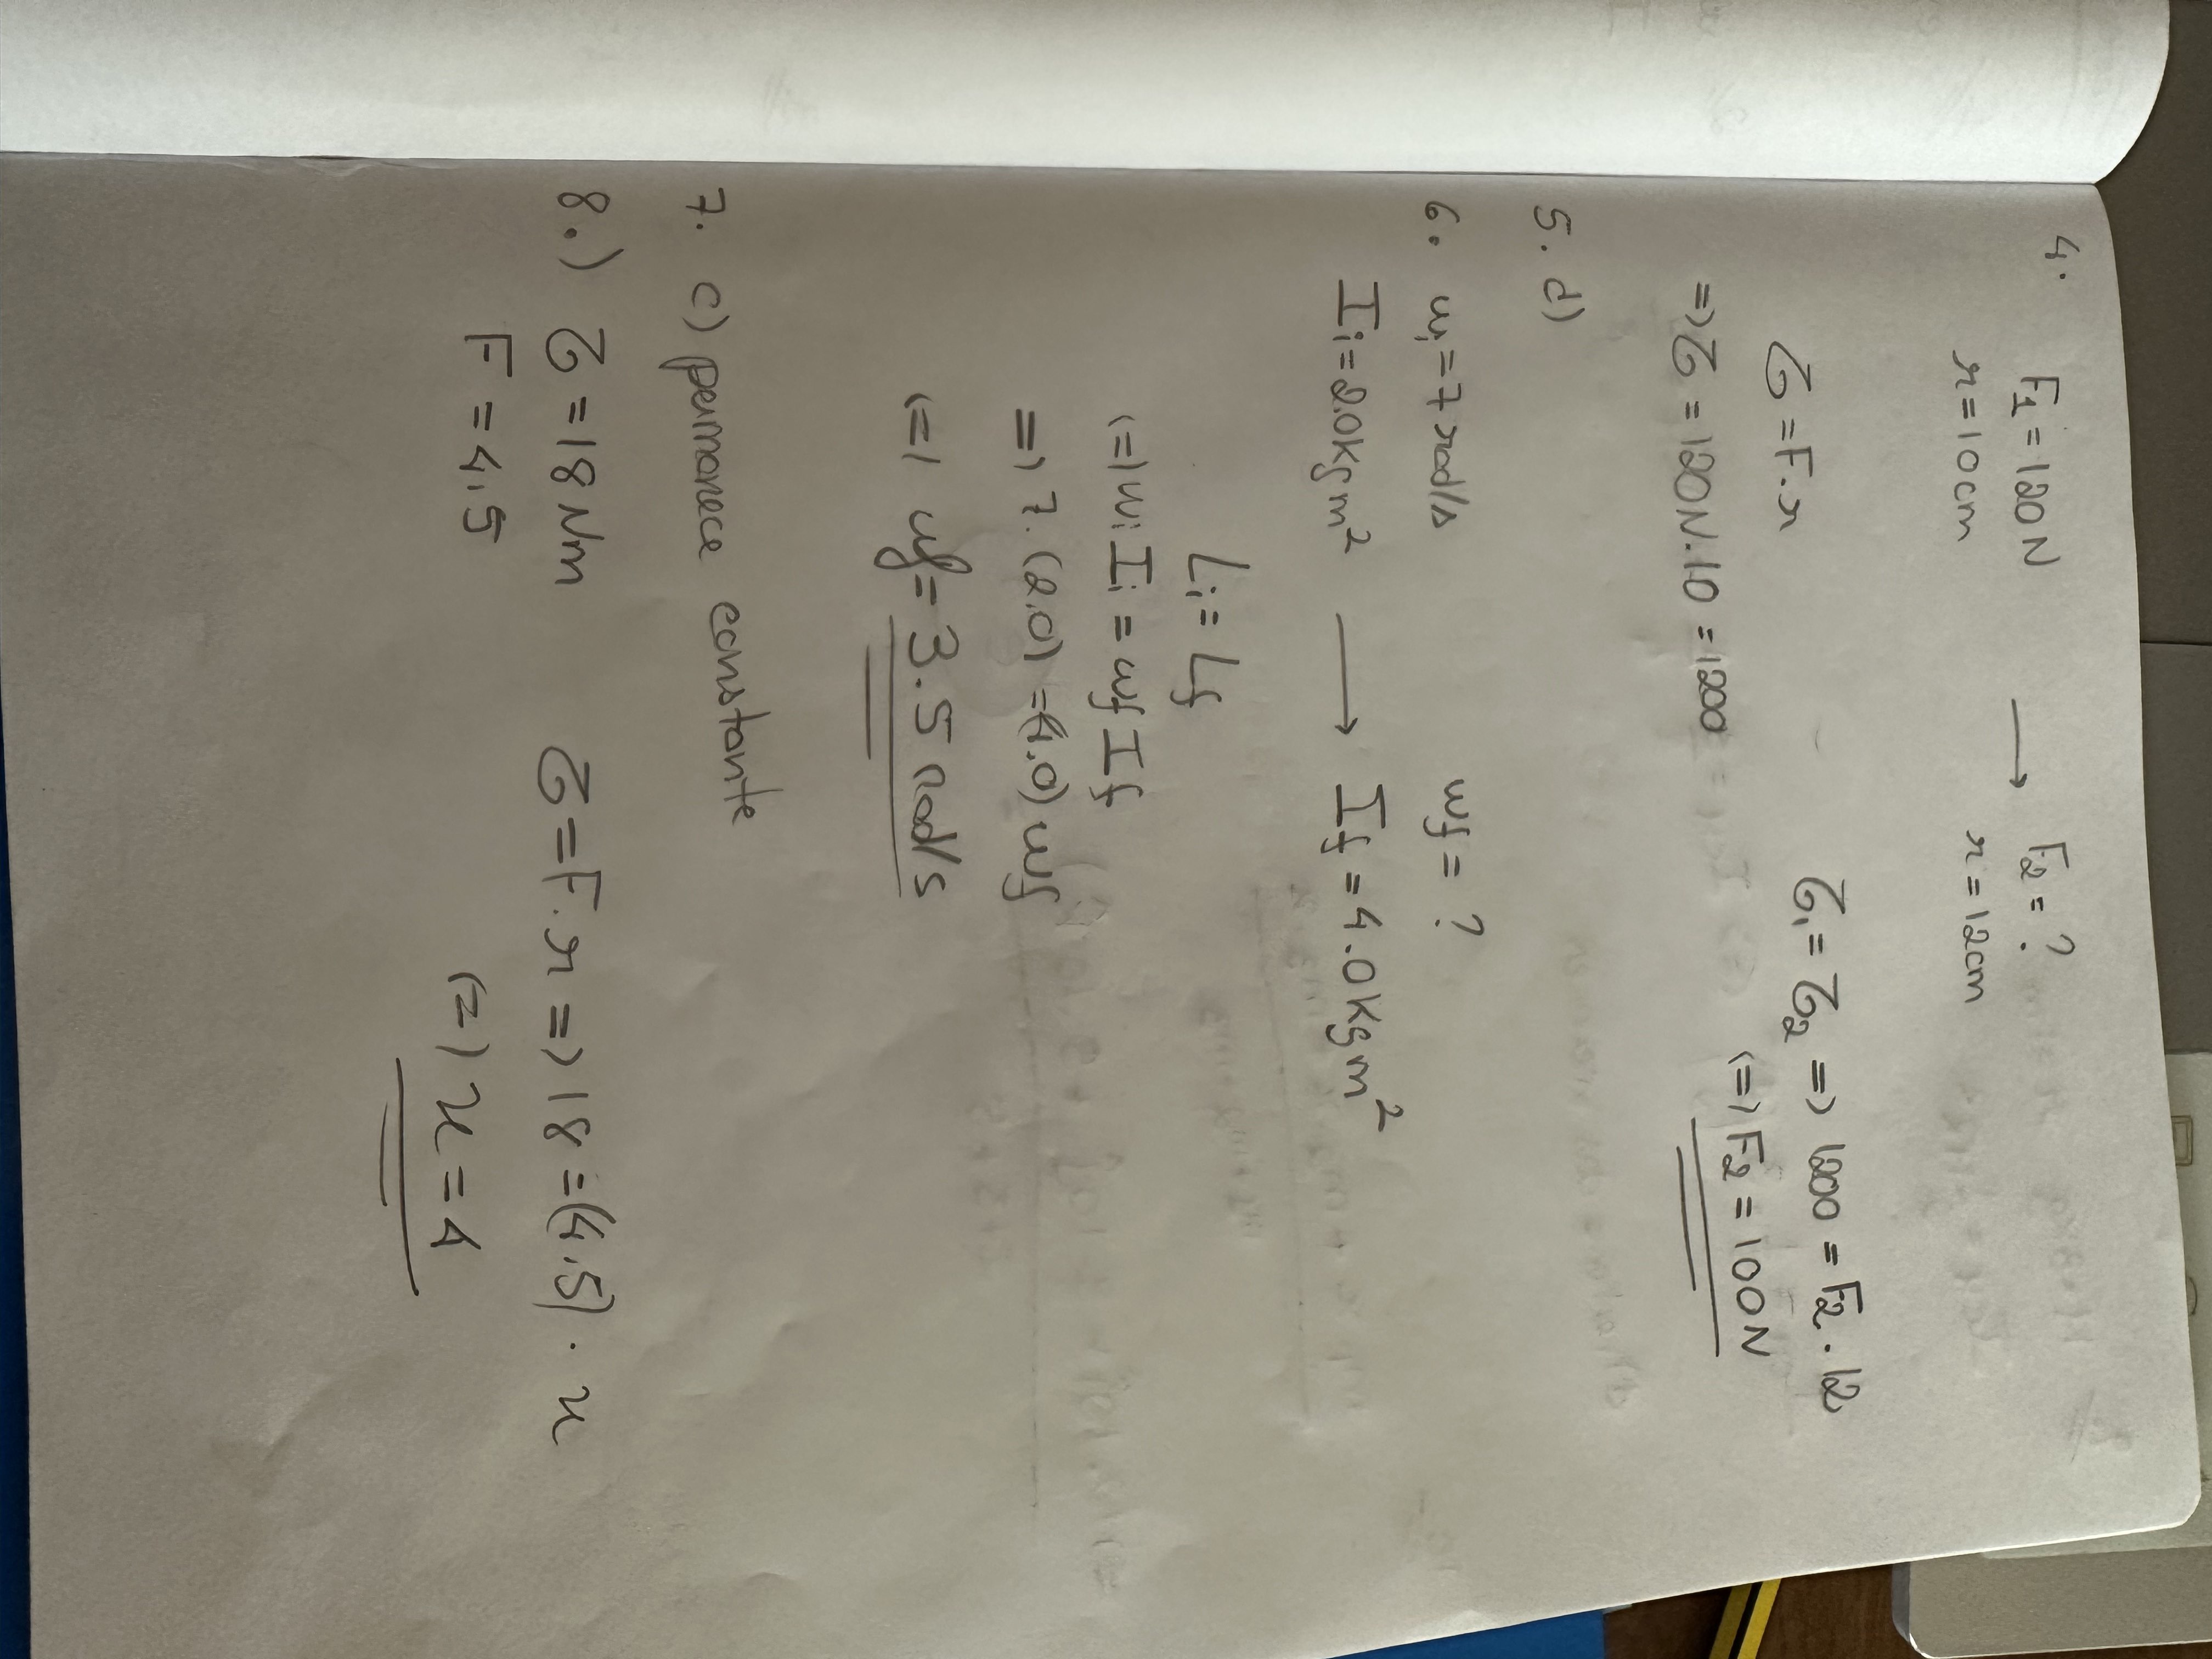 4. F1 = 120N → F2 = ?
r = 10cm r = 12cm
τ = F.r τ1 = τ2 => 1200 = F2.12
=> τ = 120N.10 = 1200 (=) F2 = 100N
5. d)
6. ωi = 7 rad/s ωf = ?
Ii = 2.0kgm² → If = 4.0kgm²
Li = Lf
(=) ωi Ii = ωf If
=) 7.(2.0) = (4.0) ωf
(=) ωf = 3.5 rad/s
7. c) permanece constante
8.) τ = 18 Nm τ = F.r => 18 = (4.5).r
F = 4,5 (=) r = 4